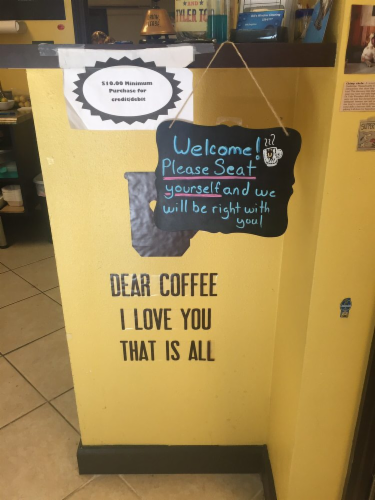 TYLER TE
$10.00 Minimum
Purchase for
credit/debit
Welcome!
Please Seat
yourself and we
will be right with
you!
DEAR COFFEE
I LOVE YOU
THAT IS ALL